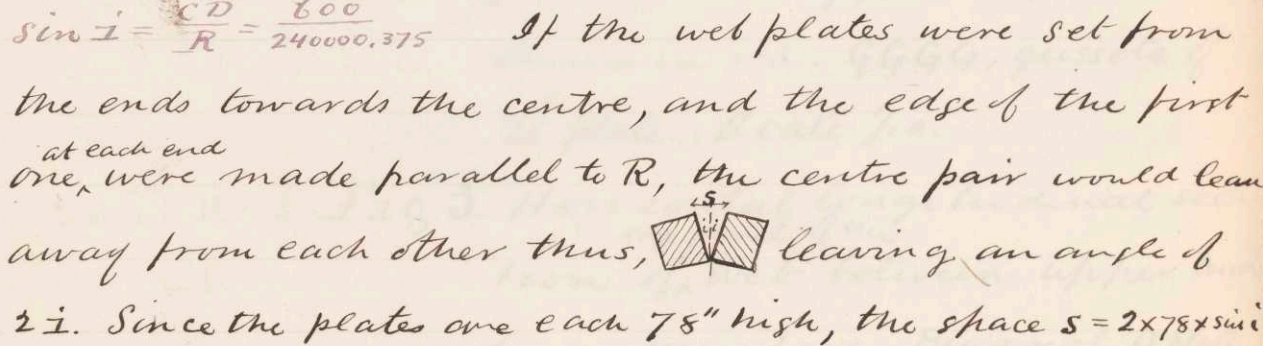 sin i = CD/R = 600/240000.375 If the web plates were set from
the ends towards the centre, and the edge of the first
at each end
one, were made parallel to R, the centre pair would lean
S
i i
away from each other thus, leaving an angle of
2 i. Since the plates are each 78" high, the space s = 2x78x sin i